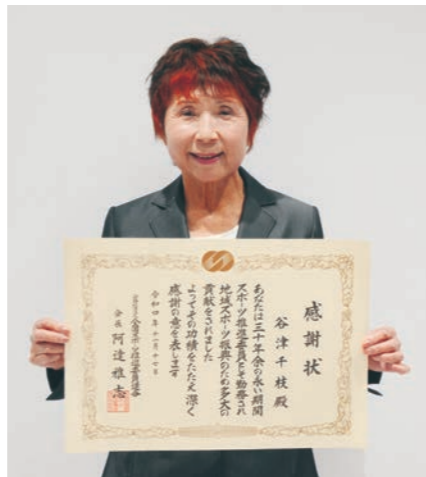 感謝状
谷津千枝殿
あなたは三十年余の永い期間
スポーツ推進委員として勤務され
地域スポーツ振興のため多大の
貢献をされました
よってその功績をたたえ深く
感謝の意を表します
令和四年十一月十七日
会長 阿達雅志